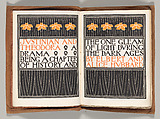 JVSTINIAN AND
THEODORA A
DRAMA
BEING A CHAPTER
OF HISTORY AND
THE ONE GLEAM
OF LIGHT DVRING
THE DARK AGES
BY ELBERT AND
ALICE HVBBARD